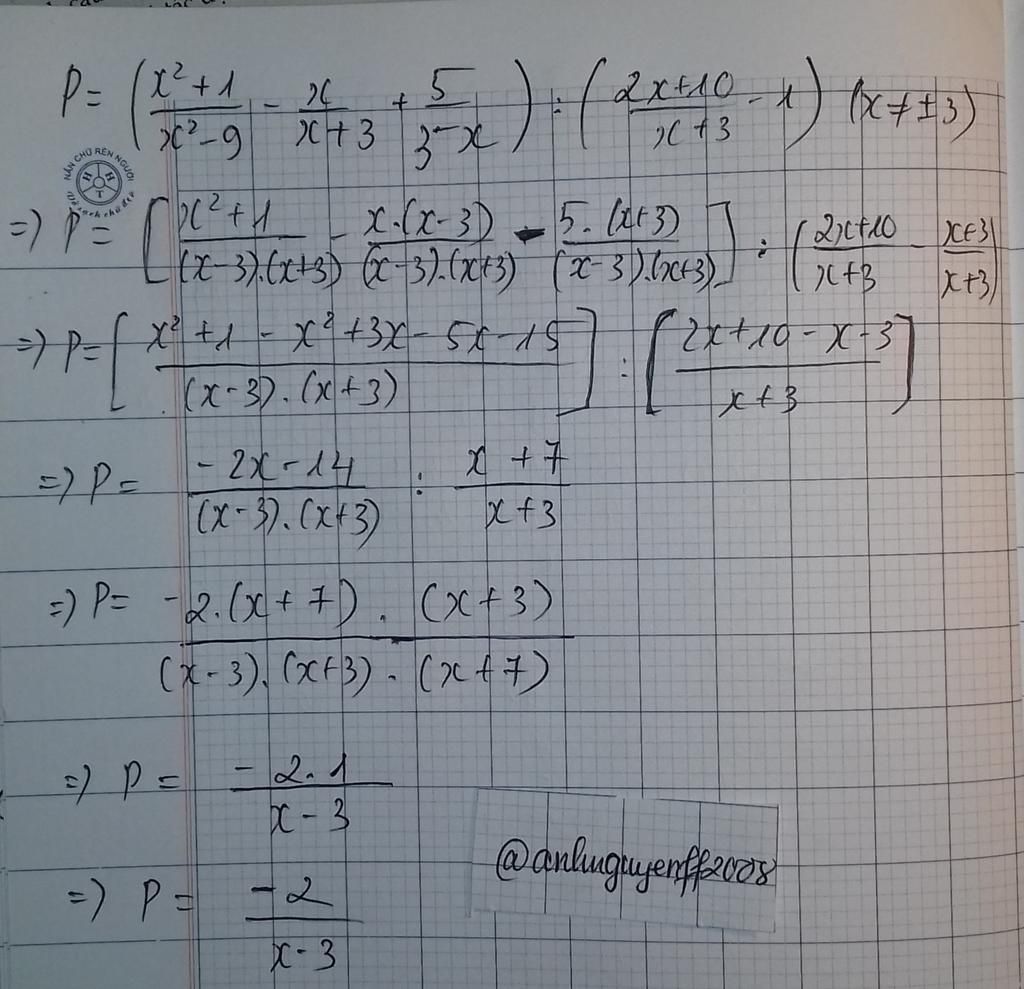 P = (x²+1/x²-9 - x/x+3 + 5/3-x) : (2x+10/x+3 - 1) (x ≠ ±3)
NẮN CHỮ RÈN NGƯỜI
H H T
=) P = [x²+1/(x-3).(x+3) - x.(x-3)/(x-3).(x+3) - 5.(x+3)/(x-3).(x+3)] : (2x+10/x+3 - x+3/x+3)
=) P = [x²+1-x²+3x-5x-15/(x-3).(x+3)] : [2x+10-x-3/x+3]
=) P = -2x-14/(x-3).(x+3) : x+7/x+3
=) P = -2.(x+7).(x+3)/(x-3).(x+3).(x+7)
=) P = -2.1/x-3
=) P = -2/x-3
@anhnguyenff2008